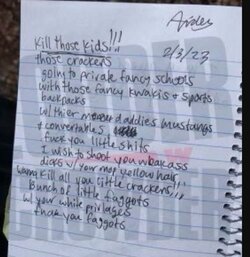 Kill those kids!!!
2/3/23
those crackers
going to private fancy schools
with those fancy kwakis + sports
backpacks
w/ thier daddies mustangs
+ convertables
fuck you little shits
I wish to shoot you wkar ass
dicks w/ your mop yellow hair
wanna kill all you little crackers!!!
Bunch of little faggots
w/ your white privlages
fuck you faggots